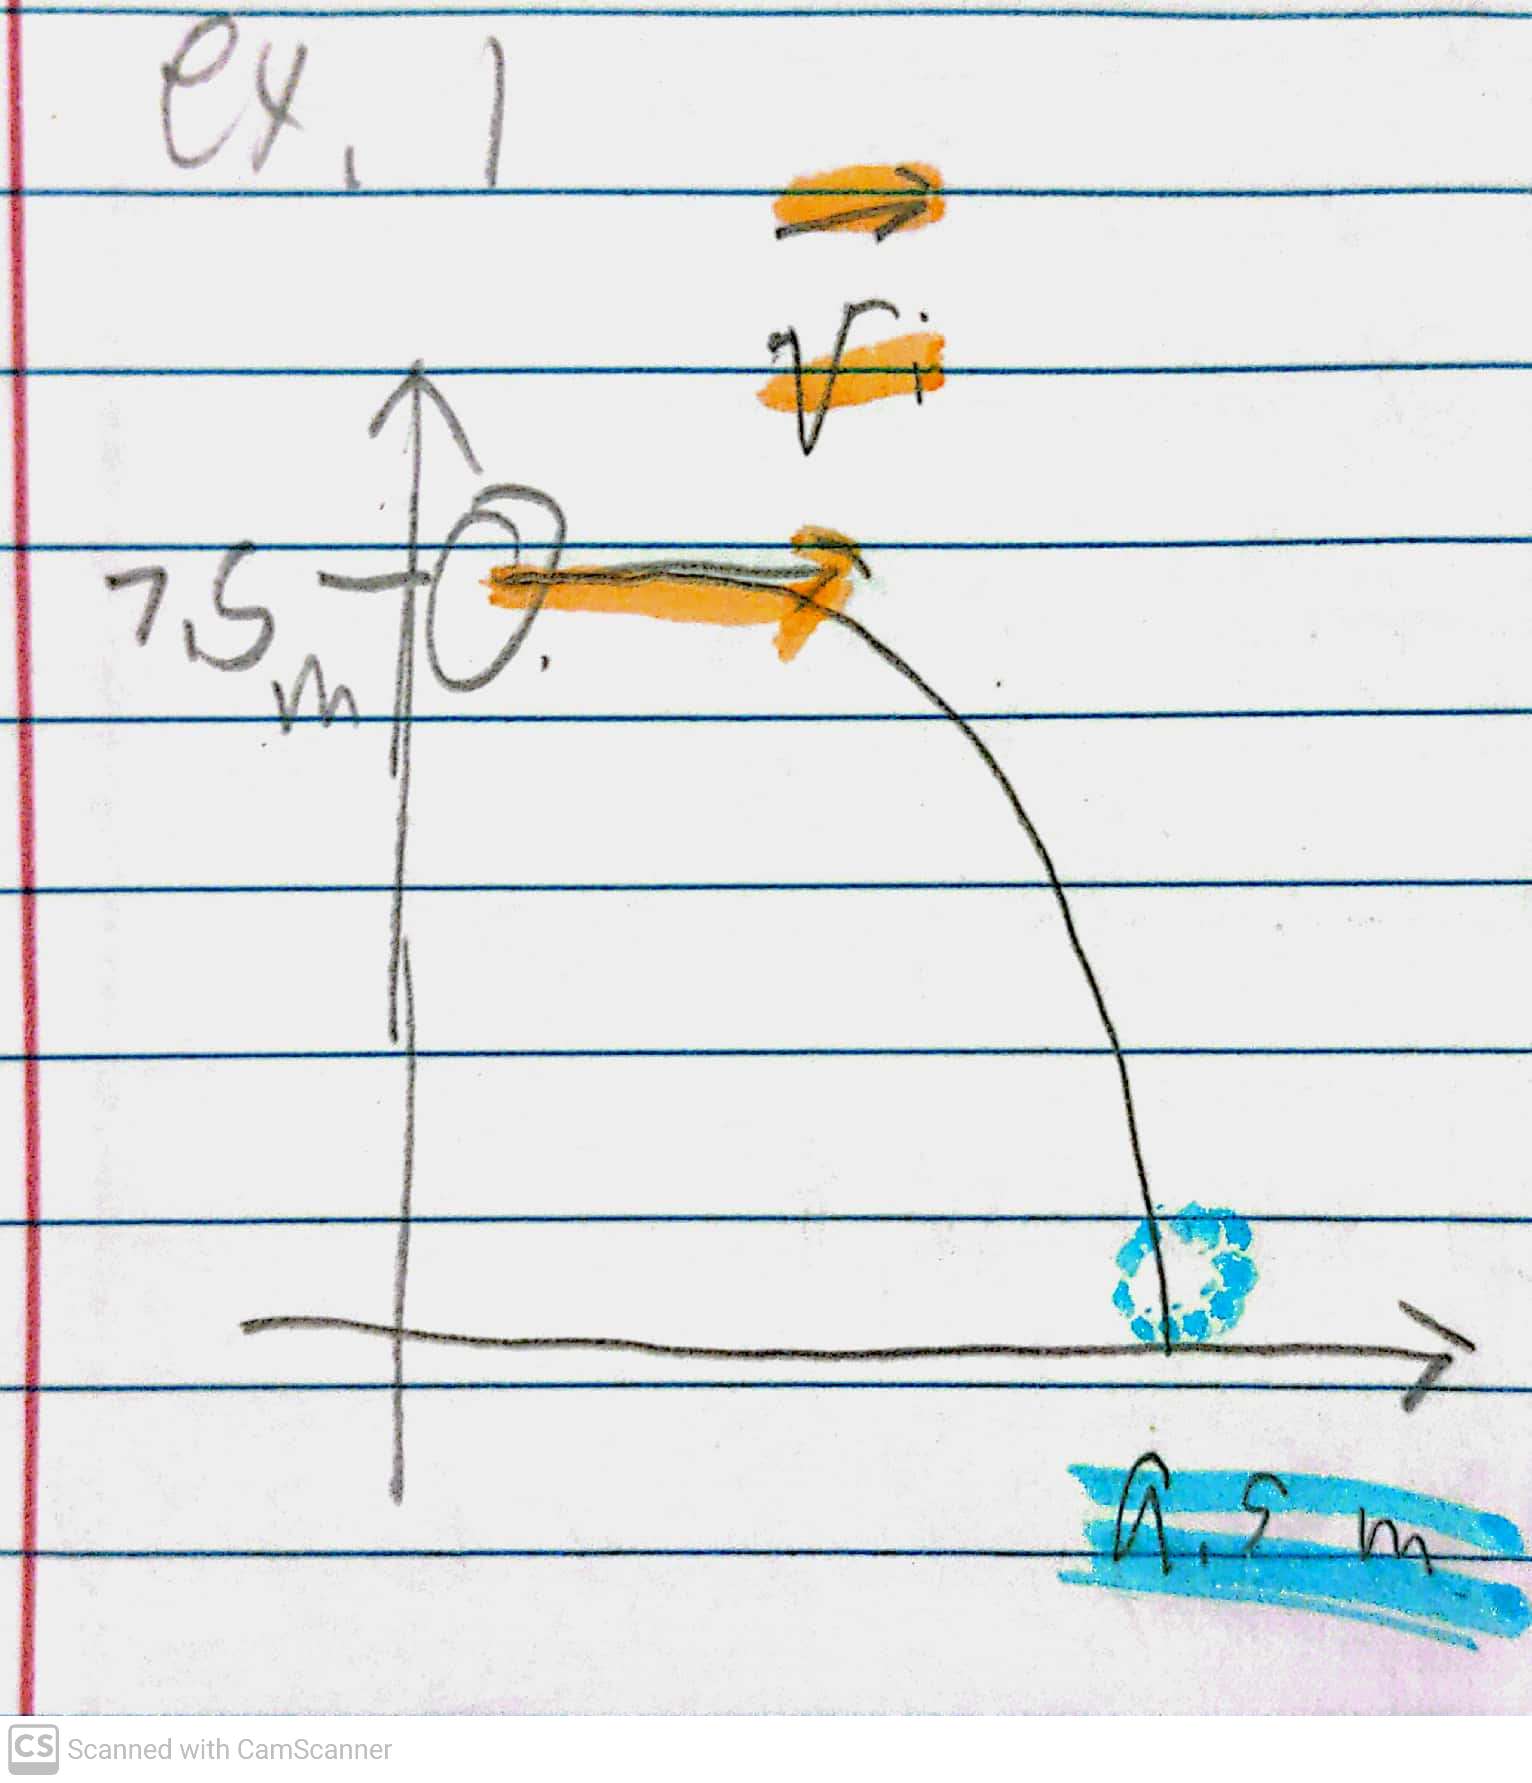 ex. 1
Vi
7.5
m
9.5 m
CS Scanned with CamScanner